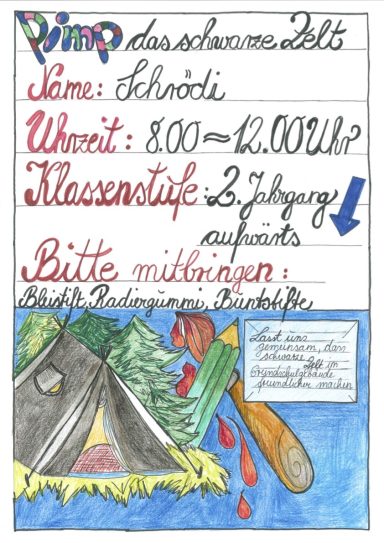 Pimp das schwarze Zelt
Name: Schrödi
Uhrzeit: 8.00 ≈ 12.00 Uhr
Klassenstufe: 2. Jahrgang
aufwärts
Bitte mitbringen:
Bleistift, Radiergummi, Buntstifte
Lasst uns
gemeinsam, das
schwarze
Zelt im
Grundschulgebäude
freundlicher machen